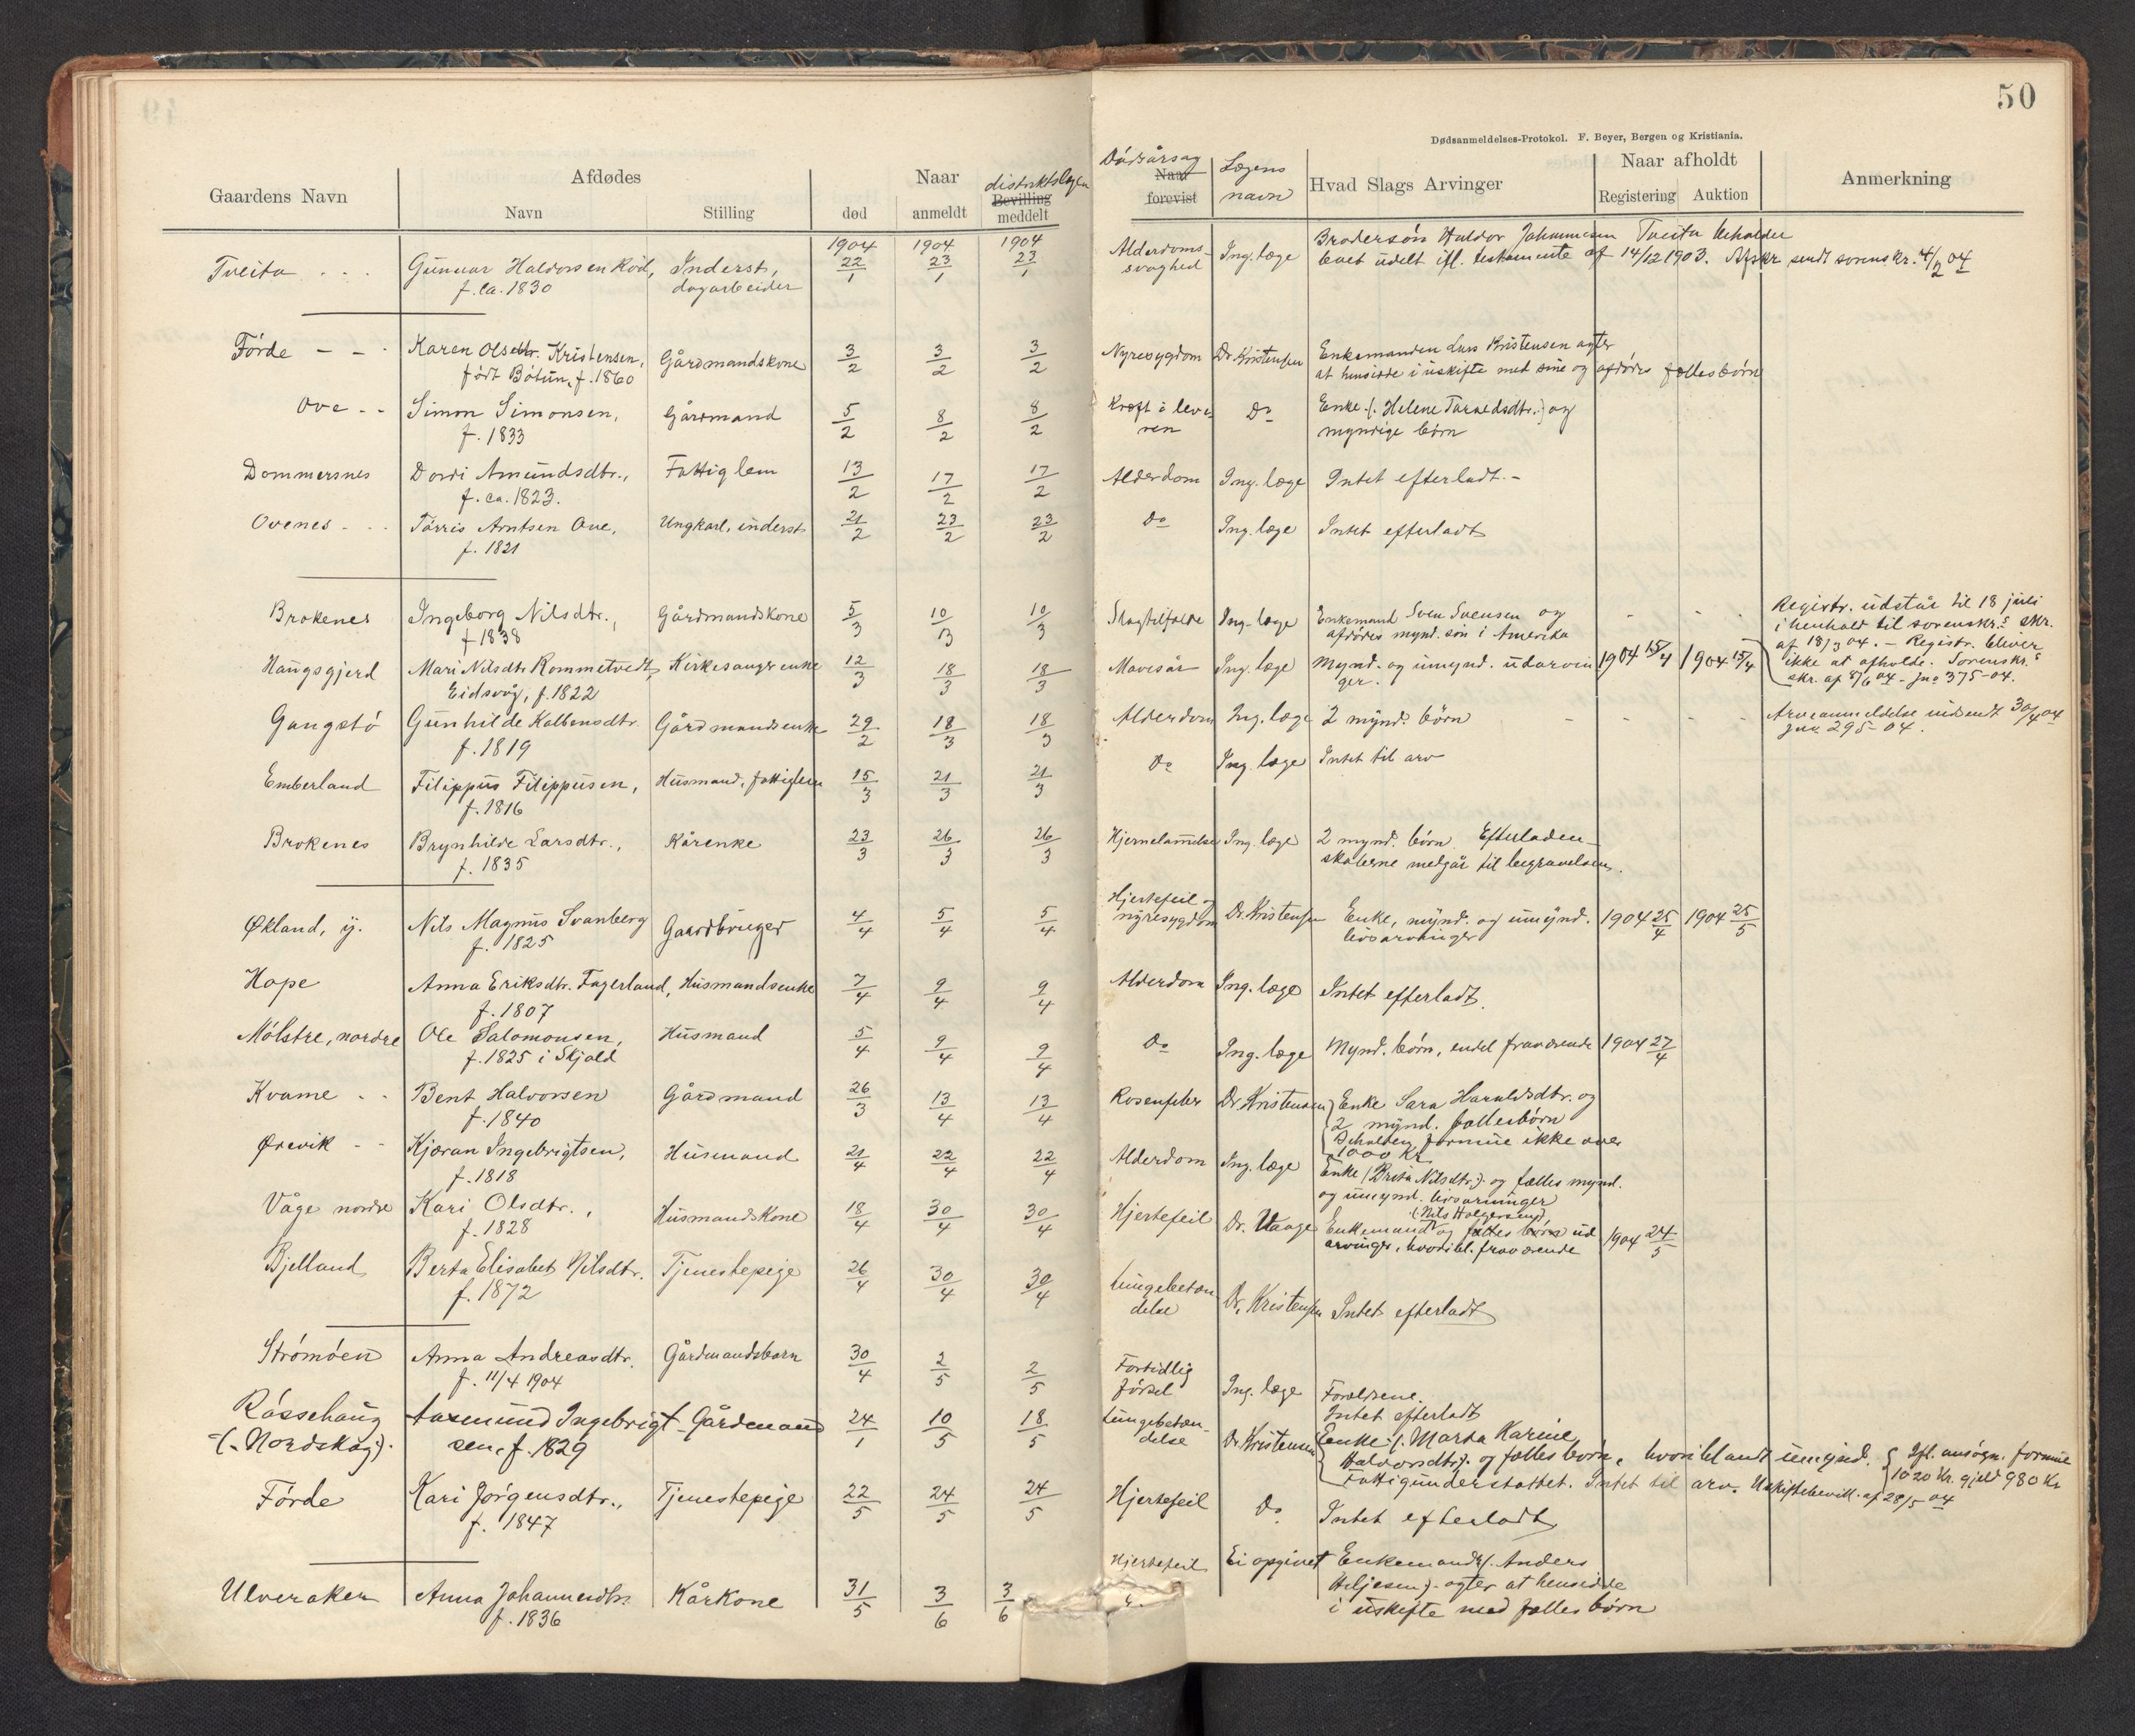 50
Dødsanmeldelses-Protokol. F. Beyer, Bergen og Kristiania.
Gaardens Navn
Afdødes
Navn
Stilling
Naar
død
anmeldt
distriktslægen
Bevilling
meddelt
Dødsårsag
Naar
forevist
Lægens
navn
Hvad Slags Arvinger
Naar afholdt
Registering
Auktion
Anmerkning
1904 1904 1904
Tveita Gunnar Haldorsen Rød, Inderst, 22/1 23/1 23/1 Alderdoms- Ing. læge Brodersøn Haldor Johannesen Tveita beholder
f. ca. 1830 dagarbeider svaghed boet udelt ifl. testamente af 14/12 1903. Afskr. sendt sorenskr. 4/2 04
Førde Karen Olsdtr. Kristensen, Gårdmandskone 3/2 3/2 3/2 Nyresygdom Dr Kristensen Enkemanden Lars Kristensen agter
født Bøtun, f. 1860 at hensidde i uskifte med sine og afdødes fællesbørn
Ove Simon Simonsen, Gårdmand 5/2 8/2 8/2 Kræft i leve- Do Enke (: Helene Tarædsdtr.:) og
f. 1833 ren myndige børn
Dommersnes Dordi Amundsdtr., Fattiglem 13/2 17/2 17/2 Alderdom Ing. læge Intet efterladt. -
f. ca. 1823.
Ovenes Tørris Arntsen Ove, Ungkarl, inderst 21/2 23/2 23/2 Do Ing. læge Intet efterladt
f. 1821
Brokenes Ingeborg Nilsdtr., Gårdmandskone 5/3 10/3 10/3 Slagtilfælde Ing. læge Enkemand Sven Svensen og - - Registr. udstår til 18 juli
f 1838 afdødes mynd. søn i Amerika i henhold til sorenskr.s skr.
af 18/3 04. - Registr. bliver
Haugsgjerd Mari Nilsdtr Rommetvedt, Kirkesanger enke 12/3 18/3 18/3 Mavesår Ing. læge Mynd. og umynd. udarvin 1904 15/4 1904 15/4 ikke at afholde. Sorenskr.s
Eidsvåg, f. 1822 ger. skr. af 8/6 04 - Jno 375-04.
Gangstø Gunhilde Kolbensdtr. Gårdmandsenke 29/2 18/3 18/3 Alderdom Ing. læge 2 mynd. børn - - - - Arveanmeldelse indsendt 30/4 04
f. 1819 Jno 295-04.
Emberland Filippus Filippusen, Husmand, fattiglem 15/3 21/3 21/3 Do Ing. læge Intet til arv
f. 1816
Brokenes Brynhilde Larsdtr., Kårenke 23/3 26/3 26/3 Hjernelammelse Ing. læge 2 mynd. børn Efterladen-
f. 1835 skaberne medgår til begravelsen.
Økland, y. Nils Magnus Svanberg Gaardbruger 4/4 5/4 5/4 Hjertefeil og Dr. Kristensen Enke, mynd. og umynd. 1904 25/4 1904 25/5
f. 1825 nyresygdom livsarvinger
Hope Anna Eriksdtr. Fagerland, Husmandsenke 7/4 9/4 9/4 Alderdom Ing. læge Intet efterladt.
f. 1807
Mølstre, nordre Ole Salomonsen, Husmand 5/4 9/4 9/4 Do Ing. læge Mynd. børn, endel fraværende 1904 27/4
f. 1825 i Skjold
Kvame Bent Halvorsen Gårdmand 26/3 13/4 13/4 Rosenfeber Dr. Kristensen Enke Sara Haraldsdtr. og
f. 1840 2 mynd. fællesbørn
Beholden formue ikke over
1000 Kr
Ørevik Kjøran Ingebrigtsen, Husmand 21/4 22/4 22/4 Alderdom Ing. læge Enke (: Brita Nilsdtr.:) og fælles mynd.
f. 1818 og umynd. livsarvinger
Våge nordre Kari Olsdtr., Husmandskone 18/4 30/4 30/4 Hjertefeil Dr. Vaage Enkemand (: Nils Holgersen:) og fælles børn ud
f. 1828 arvinger, hvoribl. fraværende 1904 24/5
Bjelland Berta Elisabet Nilsdtr. Tjenestepige 26/4 30/4 30/4 Lungebetæn Dr. Kristensen Intet efterladt
f. 1872 delse
Strømøen Anna Andreasdtr. Gårdmandsbarn 30/4 2/5 2/5 Fortidlig Ing. læge Forældrene.
f. 11/4 1904 fødsel Intet efterladt
Røssehaug Aasmund Ingebrigt- Gårdmand 24/1 10/5 18/5 Lungebetæn- Dr. Kristensen Enke (: Marta Karine
(: Nordskog:). sen, f. 1829 delse Halvorsdtr:). og fælles børn, hvoriblandt umynd. Ifl. ansøgn. formue
Fattigunderstøttet. Intet til arv. Uskiftebevill. af 28/5 04 1020 Kr. gjeld 980 Kr
Førde Kari Jørgensdtr., Tjenestepige 22/5 24/5 24/5 Hjertefeil Do Intet efterladt
f. 1847
Ulveraker Anna Johannesdtr. Kårkone 31/5 3/6 3/6 Hjertefeil Ei opgivet Enkemand (: Anders
f. 1836 Viljesen:) - agter at hensidde
i uskifte med fælles børn